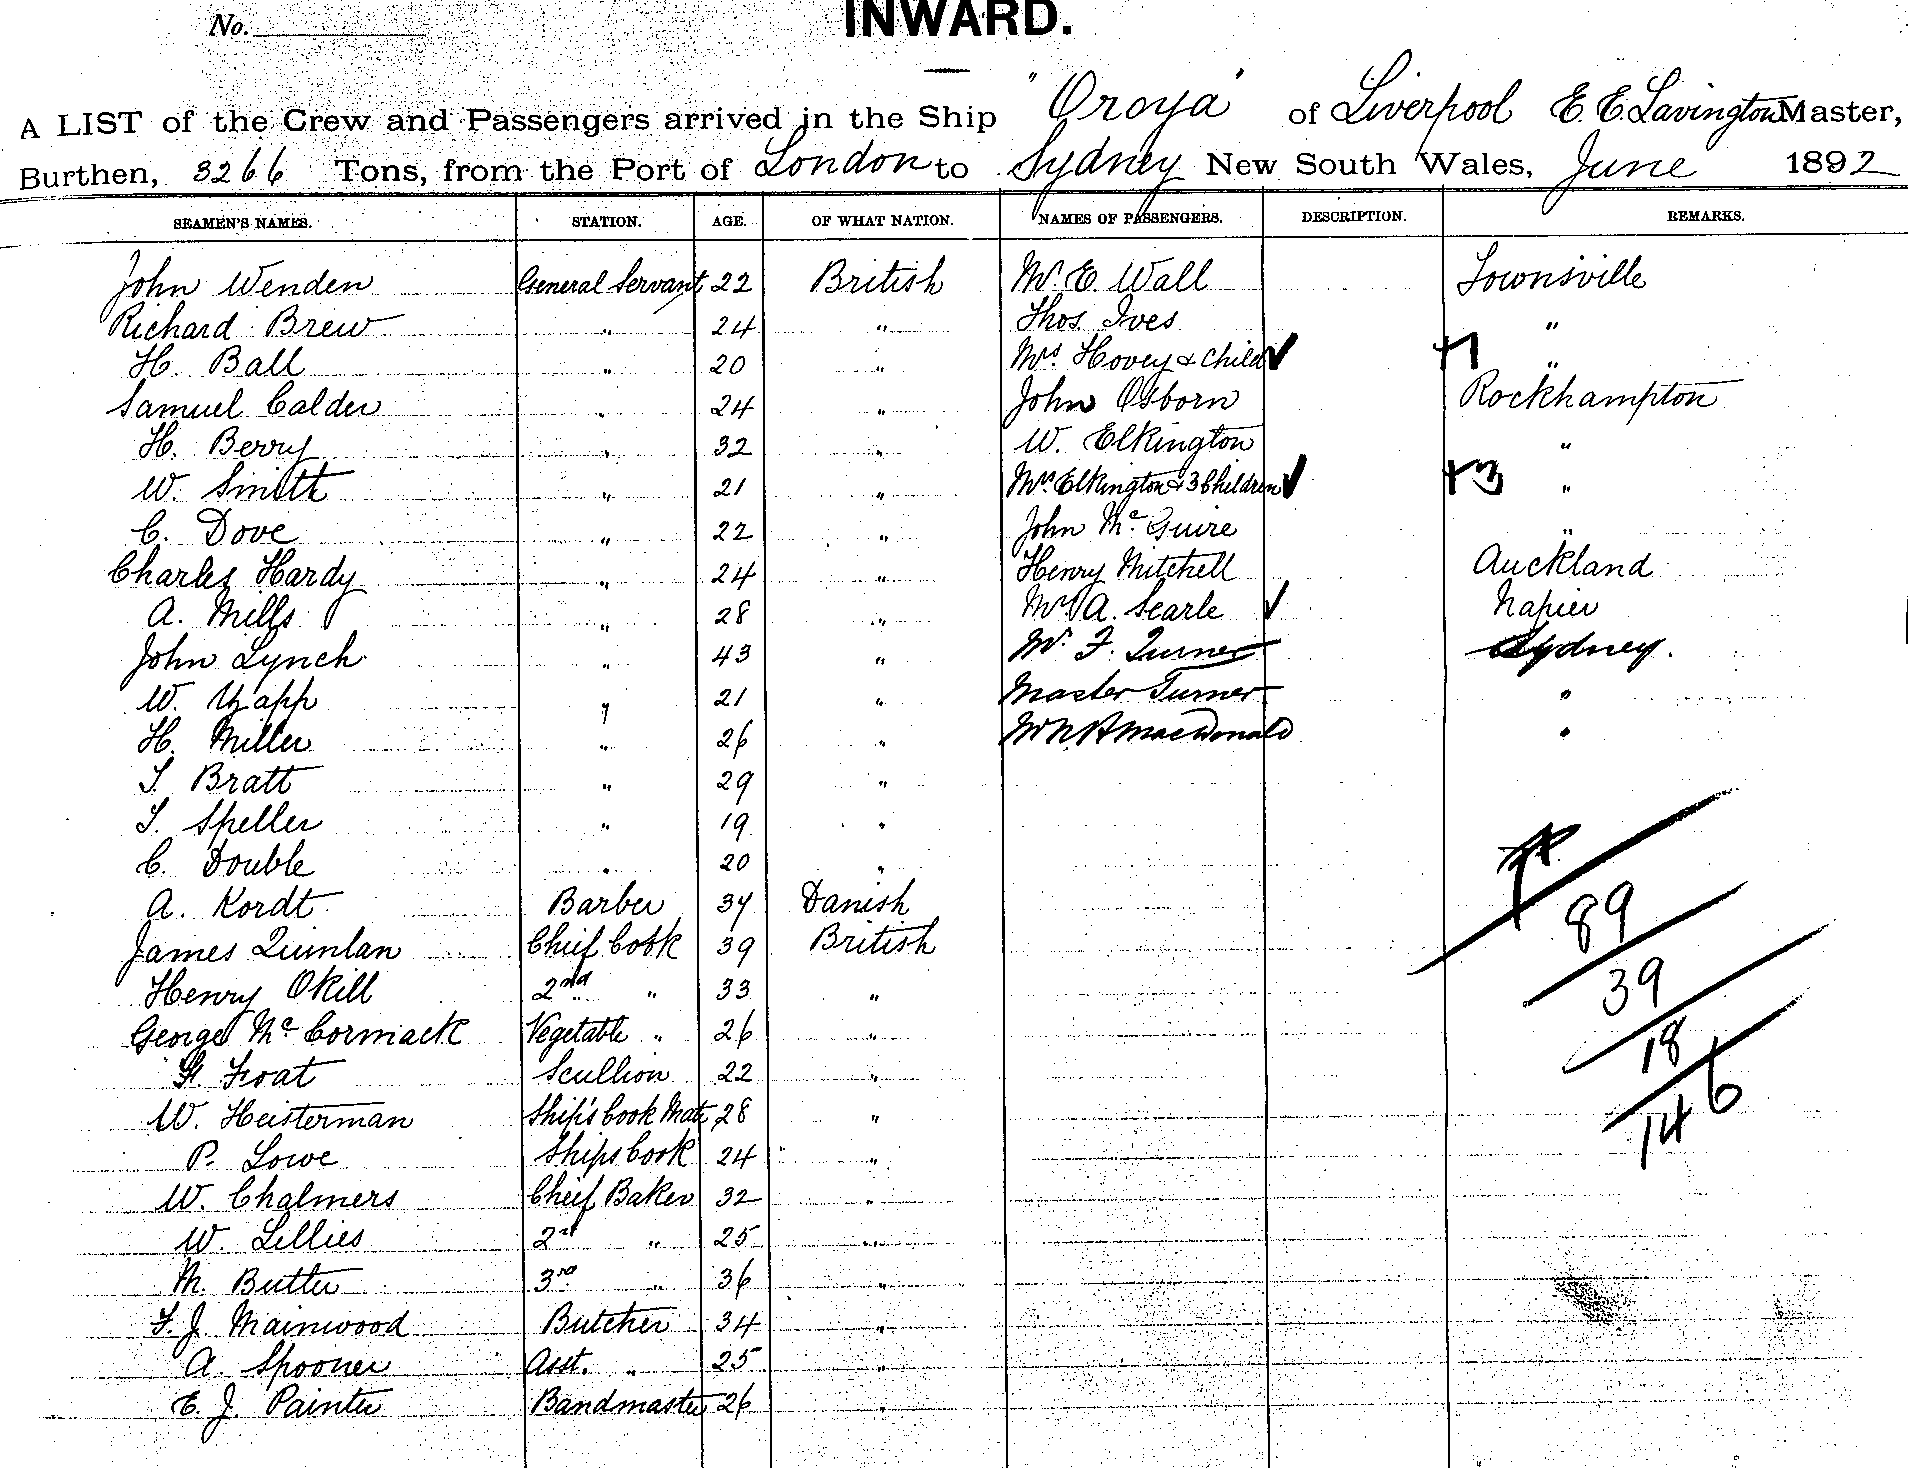 No.
INWARD.
A LIST of the Crew and Passengers arrived in the Ship "Oroya" of Liverpool E E Lavington Master,
Burthen, 3266 Tons, from the Port of London to Sydney New South Wales, June 1892
SEAMEN'S NAMES. STATION. AGE. OF WHAT NATION. NAMES OF PASSENGERS. DESCRIPTION. REMARKS.
John Wenden General Servant 22 British Mr. E. Wall Townsville
Richard Brew " 24 " Thos. Ives "
H. Ball " 20 " Mrs. Hovey & Child ✓ +1 "
Samuel Calder " 24 " John Osborn Rockhampton
H. Berry " 32 " W. Elkington "
W. Smith " 21 " Mrs. Elkington & 3 Children ✓ +3 "
C. Dove " 22 " John McGuire "
Charles Hardy " 24 " Henry Mitchell Auckland
A. Mills " 28 " Mrs A. Searle ✓ Napier
John Lynch " 43 " Mr. F. Turner Sydney.
W. Yapp " 21 " Master Turner "
H. Miller " 26 " Mr N. H MacDonald "
T. Bratt " 29 "
T. Speller " 19 "
C. Double " 20 "
A. Kordt Barber 34 Danish
James Quinlan Chief Cook 39 British
89
Henry Okill 2nd " 33 "
39
George McCormack Vegetable " 26 "
18
Froat Scullion 22 "
W. Heisterman Ship's Cook Mate 28 "
146
P. Lowe Ships Cook 24 "
W. Chalmers Cheif Baker 32 "
W. Lillies 2nd " 25 "
M. Butler 3rd " 36 "
F. J. Mainwood Butcher 34 "
A. Spooner Asst. " 25 "
E. J. Painter Bandmaster 26 "